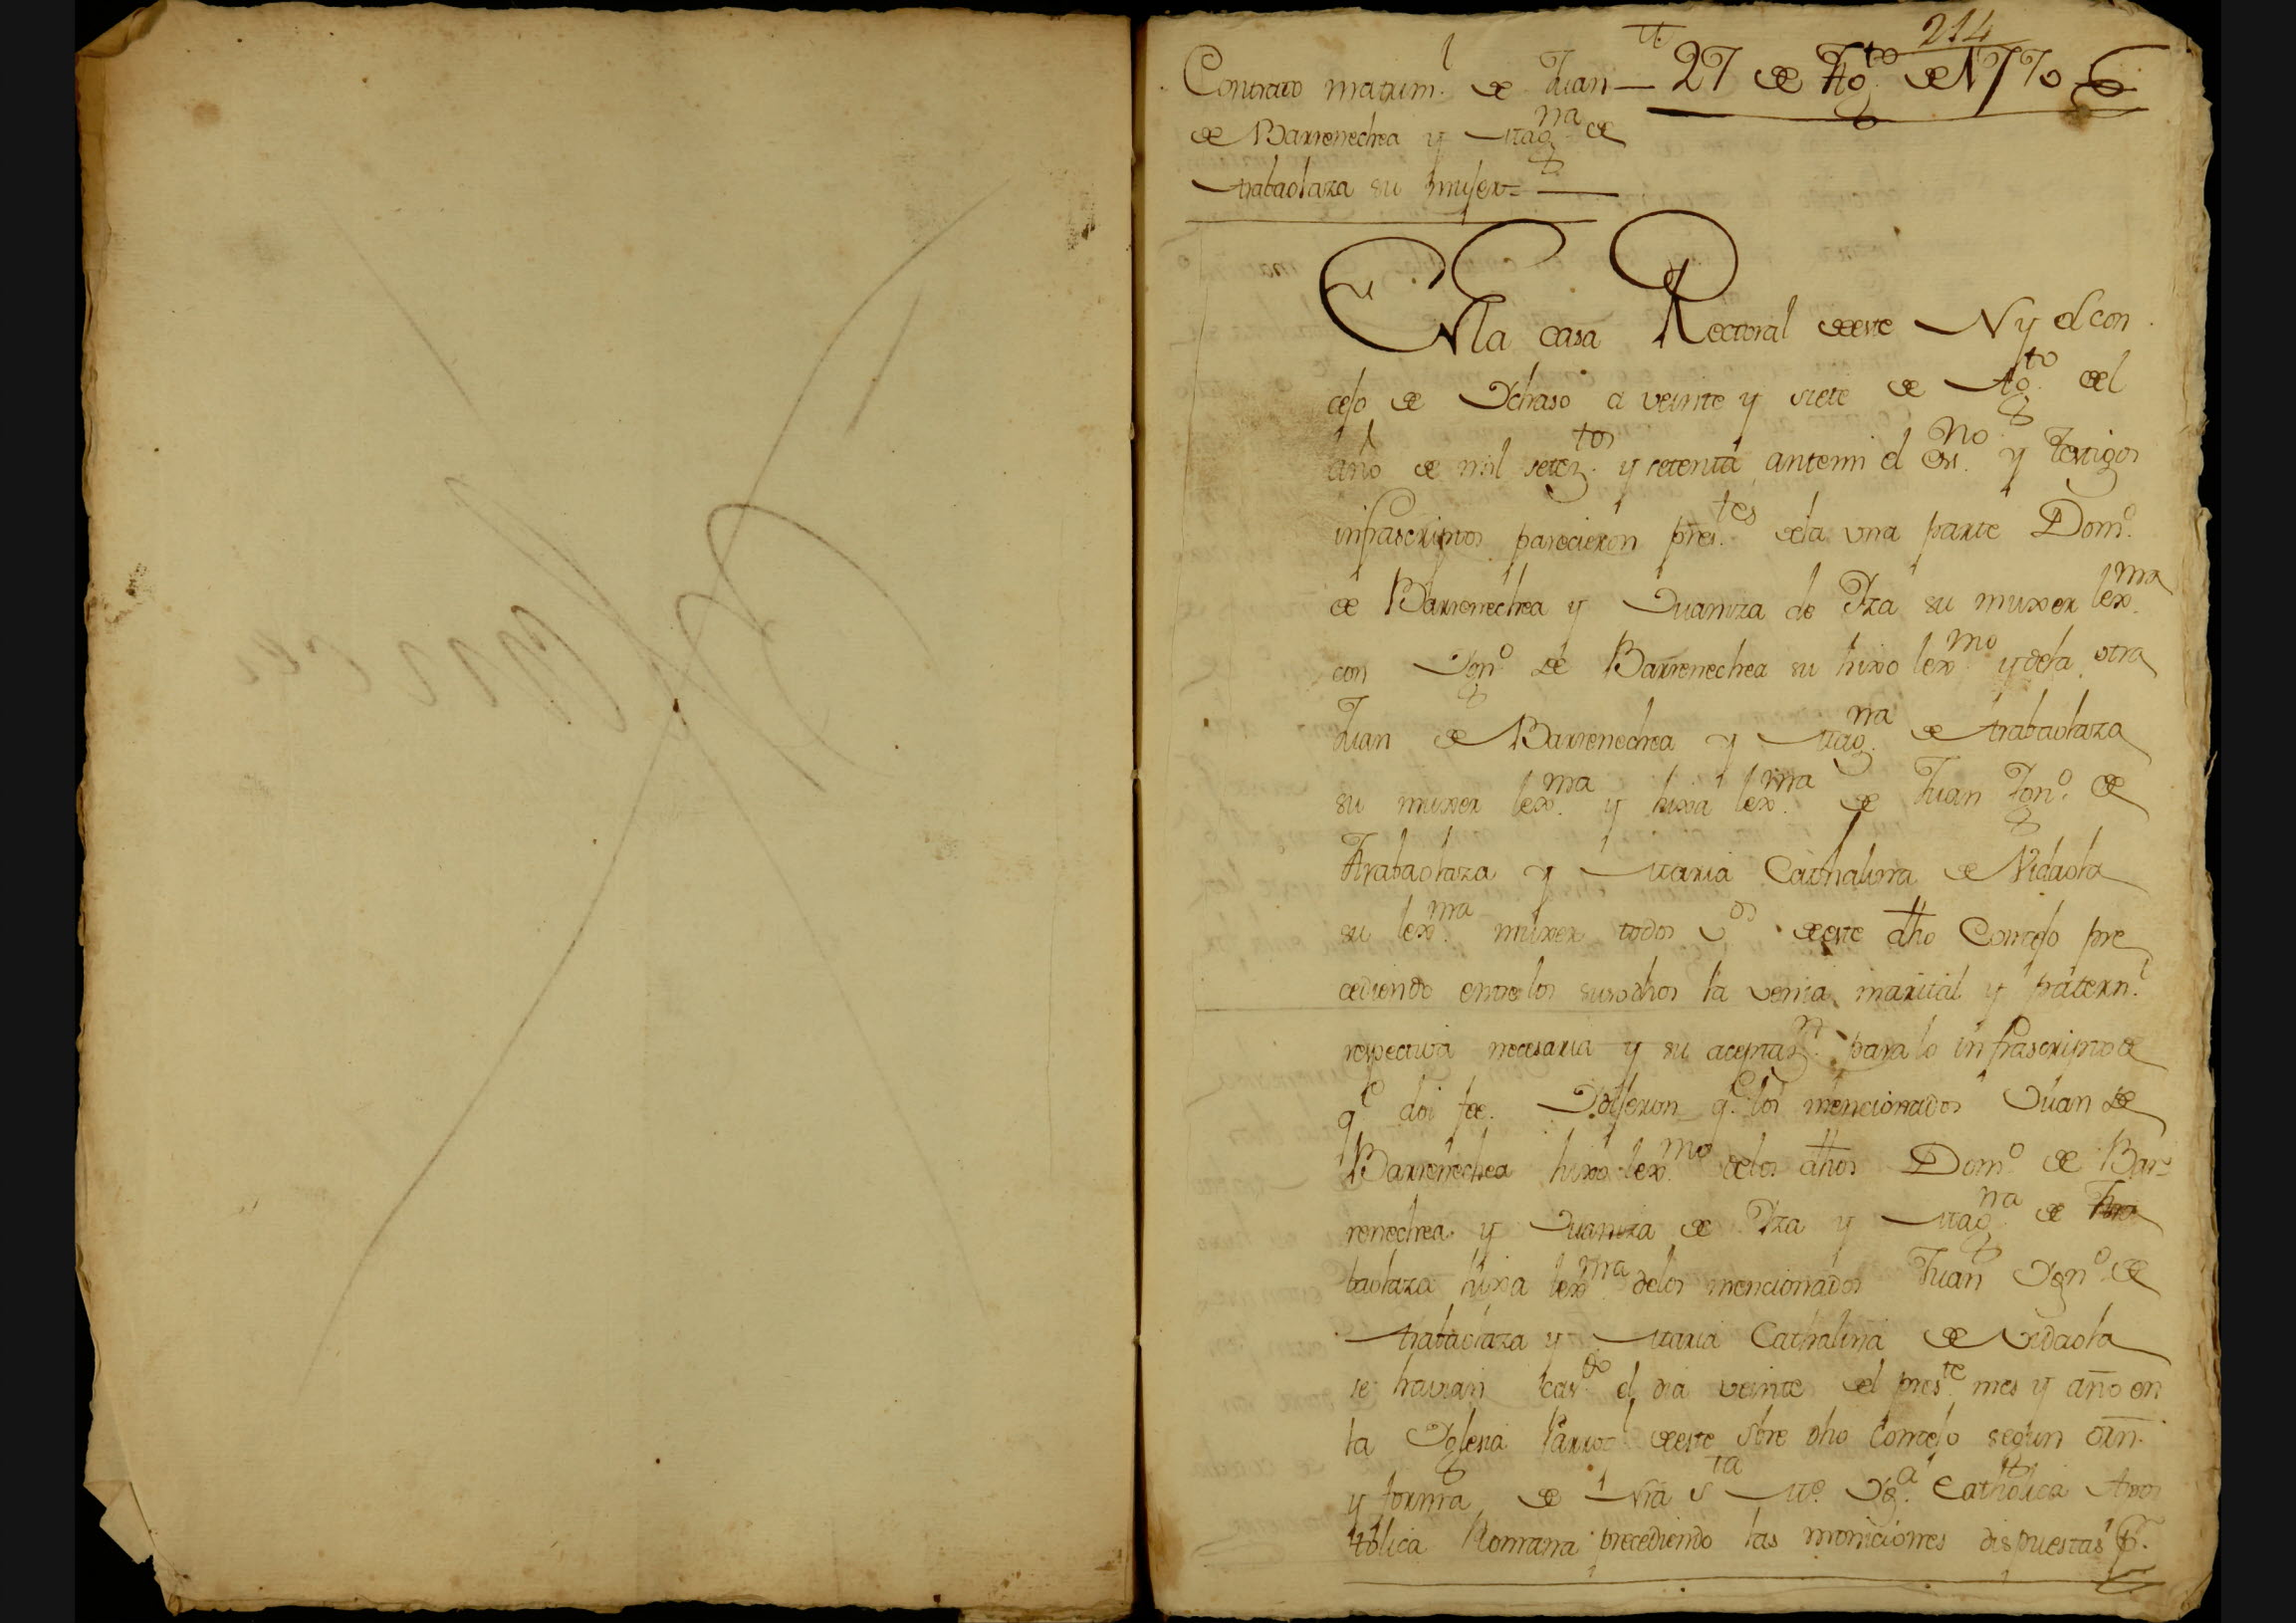 214
Contrato matrim.l de Juan — 27 de Ag.to de 1770
de Barrenechea y Mag.na de
trabaolaza su mujer=
En la casa Rectoral deeste N y el con
cejo de Ychaso a veinte y siete de Ag.to del
año de mil setez.tos y setenta antemi el es.no y testigos
infrascriptos parecieron pres.tes dela una parte Dom.o
de Barrenechea y Juaniza de Yza su muxer lex.ma
con Ygn.o de Barrenechea su hixo lex.mo y dela otra
Juan de Barrenechea y Mag.na de trabaolaza
su muxer lex.ma y hixa lex.ma de Juan Ygn.o de
Trabaolaza y Maria Cathalina de Vidaola
su lex.ma muxer todos v.os deeste dho Concejo pre
cediendo entre los susodhos la venia marital y patern.l
respectiva necesaria y su aceptaz.n para lo infrascripto de
q.e doi fee. Dijeron q.e los mencionados Juan de
Barrenechea hixo lex.mo delos dhos Dom.o de Bar-
renechea y Juaniza de Yza y Mag.na de Tra
baolaza hixa lex.ma delos mencionados Juan Ygn.o de
trabaolaza y Maria Cathalina de Vidaola
se havian cas.do el dia veinte del pres.te mes y año en
la Yglesia Parroq.l deeste sbre dho Concejo segun orn.
y forma de nra S.ta M.e Yg.a Catholica Apos
tolica Romana precediendo las moniciones dispuestas p.r